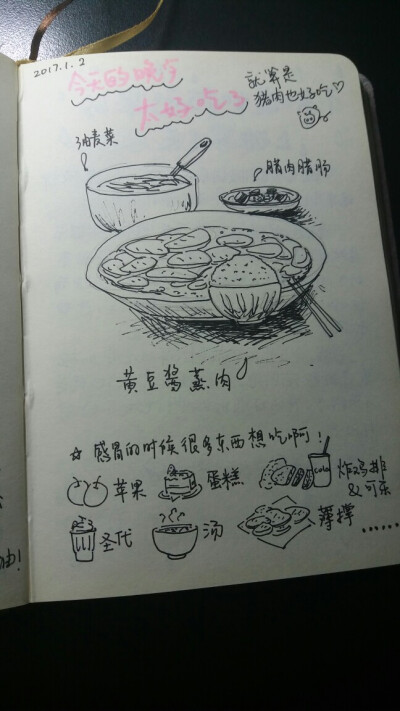 2017.1.2
今天的晚歺
太好吃了
就算是
猪肉也好吃♡
油麦菜
腊肉腊肠
黄豆酱蒸肉
☆ 感冒的时候很多东西想吃啊！
苹果
蛋糕
cola
炸鸡排
&可乐
圣代
汤
薄撑
......